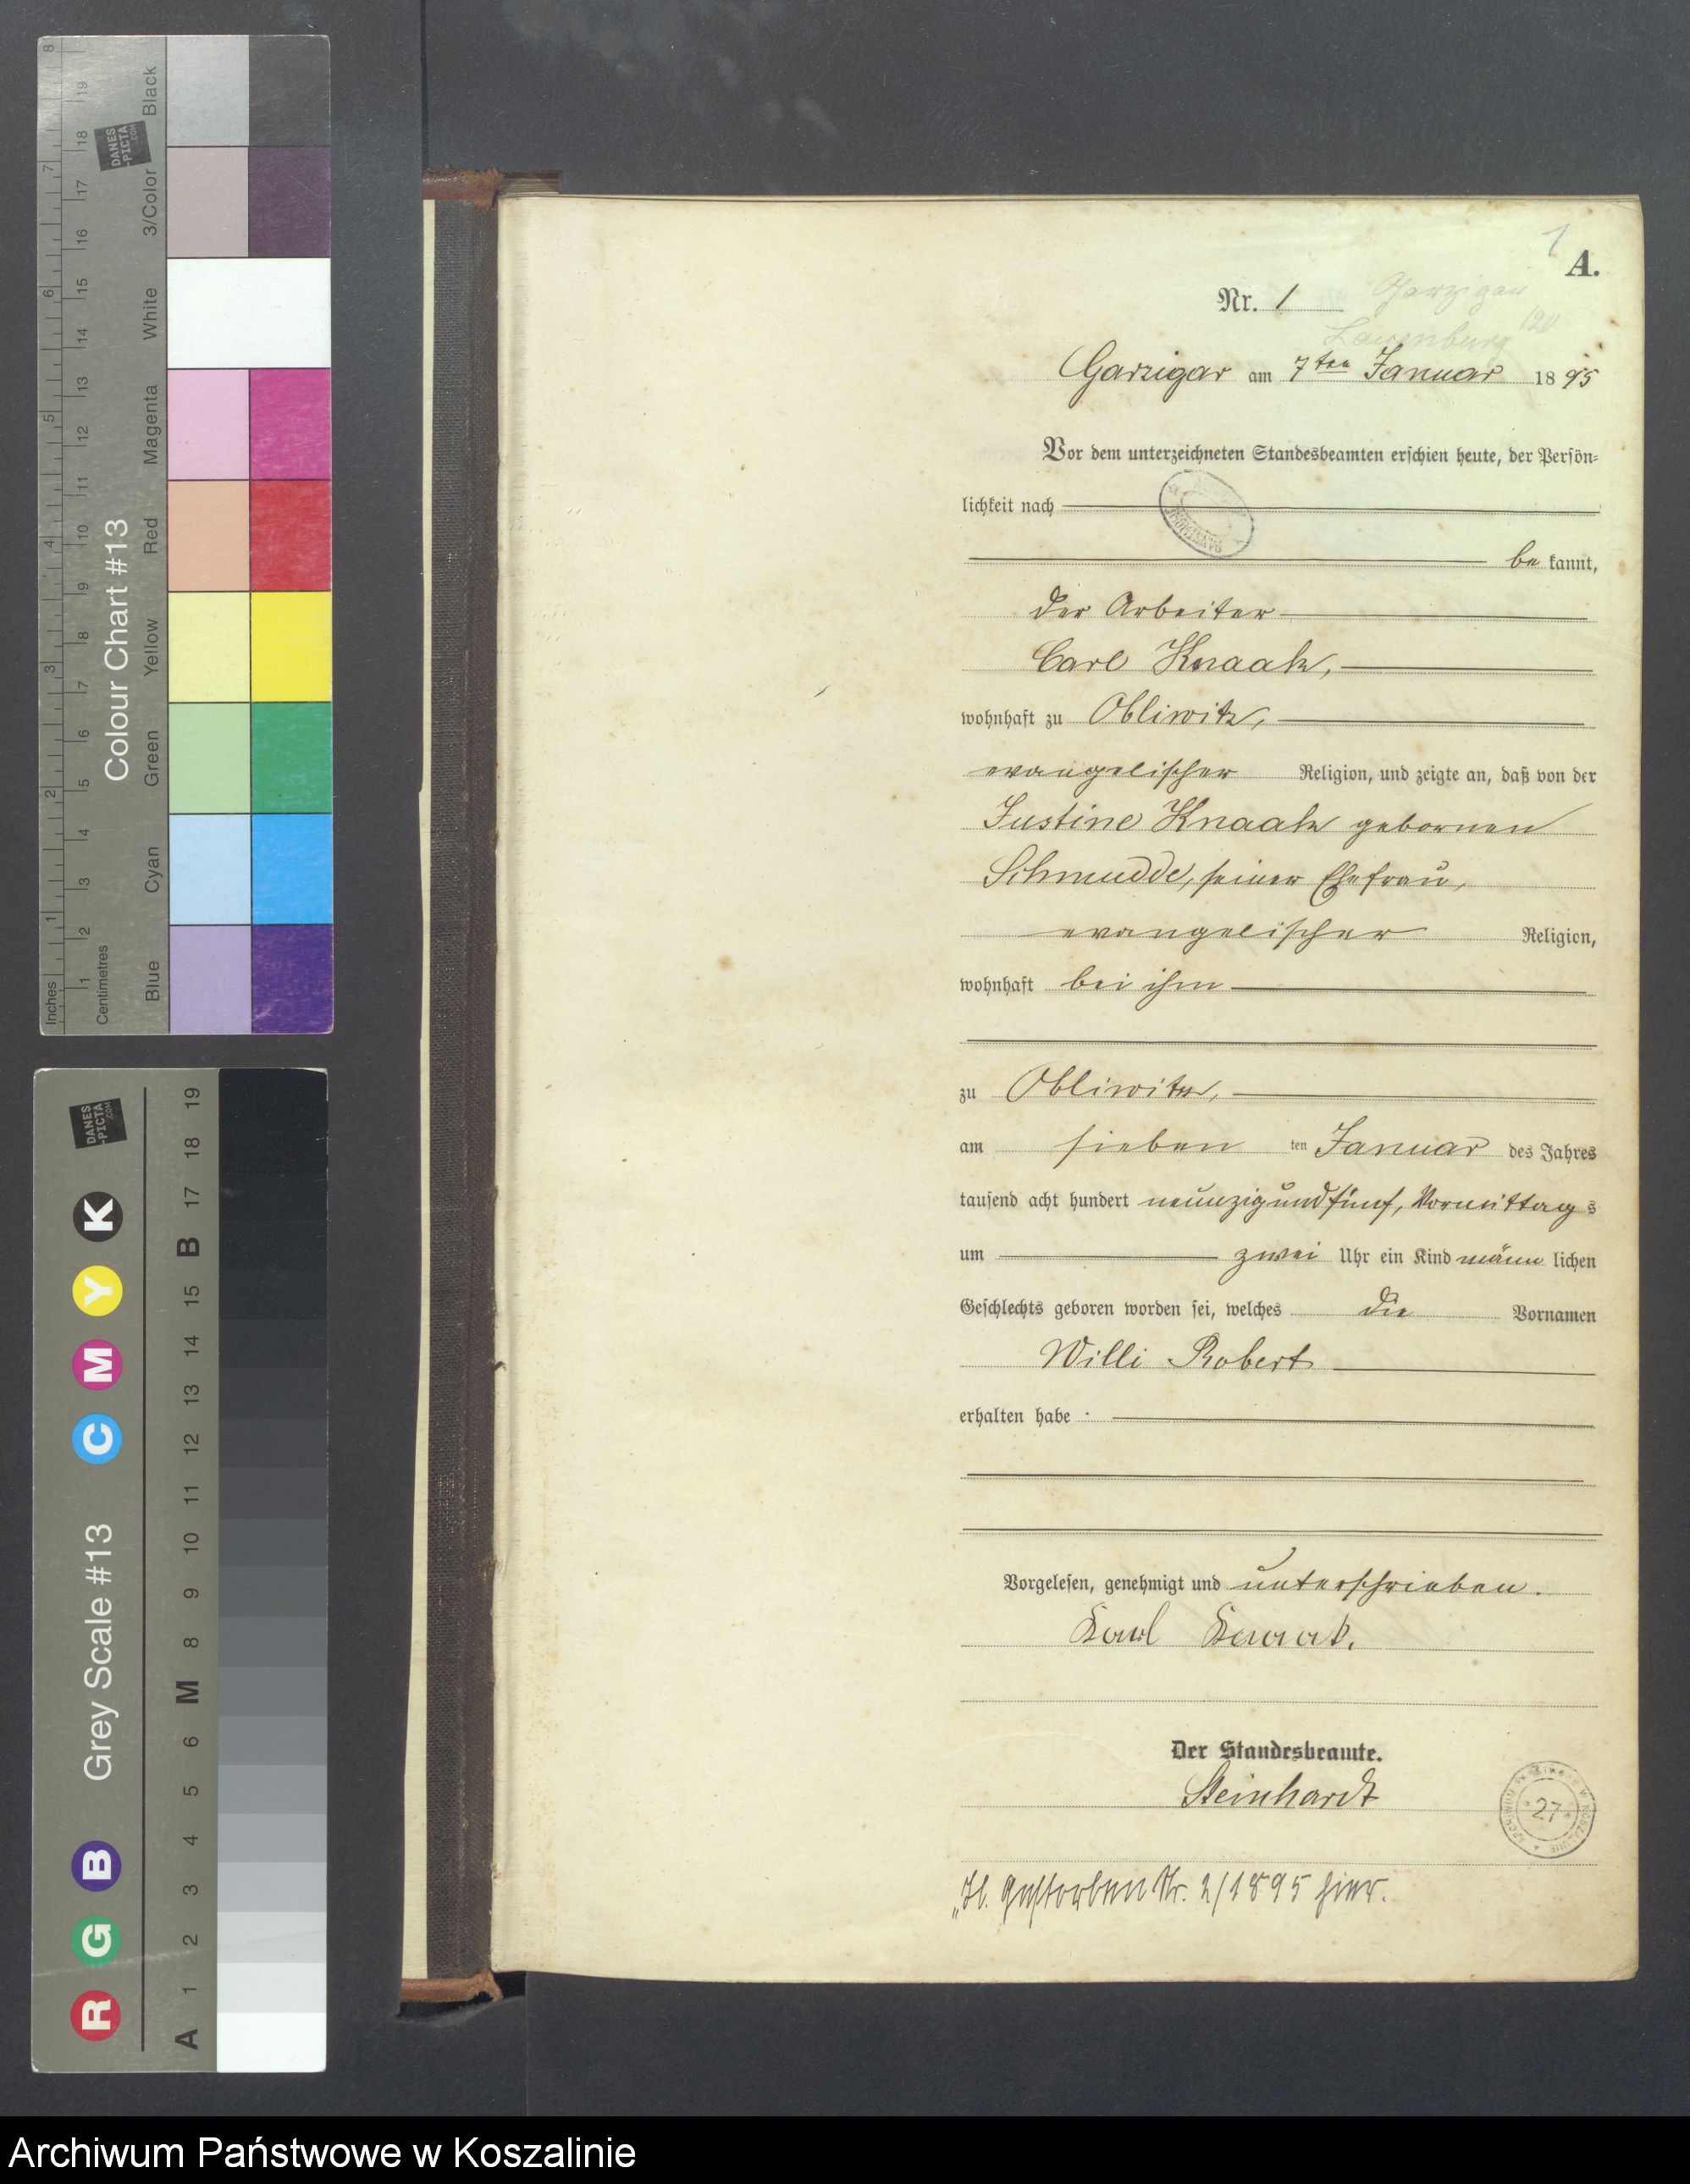 Inches
Centimetres
1 2 3 4 5 6 7 8
1 2 3 4 5 6 7 8 9 10 11 12 13 14 15 16 17 18 19
Colour Chart #13
Blue Cyan Green Yellow Red Magenta White 3/Color Black
DANES
-PICTA
.COM
Grey Scale #13
R G B C M Y K
A 1 2 3 4 5 6 M 8 9 10 11 12 13 14 15 B 17 18 19
DANES
-PICTA
.COM
1
A.
Nr. 1
Lauenburg 120
Garzigar am 7ten Januar 1895
Vor dem unterzeichneten Standesbeamten erschien heute, der Persön-
lichkeit nach
be kannt,
der Arbeiter
Carl Knaak,
wohnhaft zu Obliwitz,
evangelischer Religion, und zeigte an, daß von der
Justine Knaak gebornen
Schmudde, seiner Ehefrau,
evangelischer Religion,
wohnhaft bei ihm
zu Obliwitz,
am sieben ten Januar des Jahres
tausend acht hundert neunzig und fünf, Vormittags
um zwei Uhr ein Kind männ lichen
Geschlechts geboren worden sei, welches die Vornamen
Willi Robert
erhalten habe
Vorgelesen, genehmigt und unterschrieben.
Karl Knaak.
Der Standesbeamte.
Steinhardt
ARCHIWUM PAŃSTWOWE W KOSZALINIE
27
Gestorben Nr. 2/1895 hier.
Archiwum Państwowe w Koszalinie